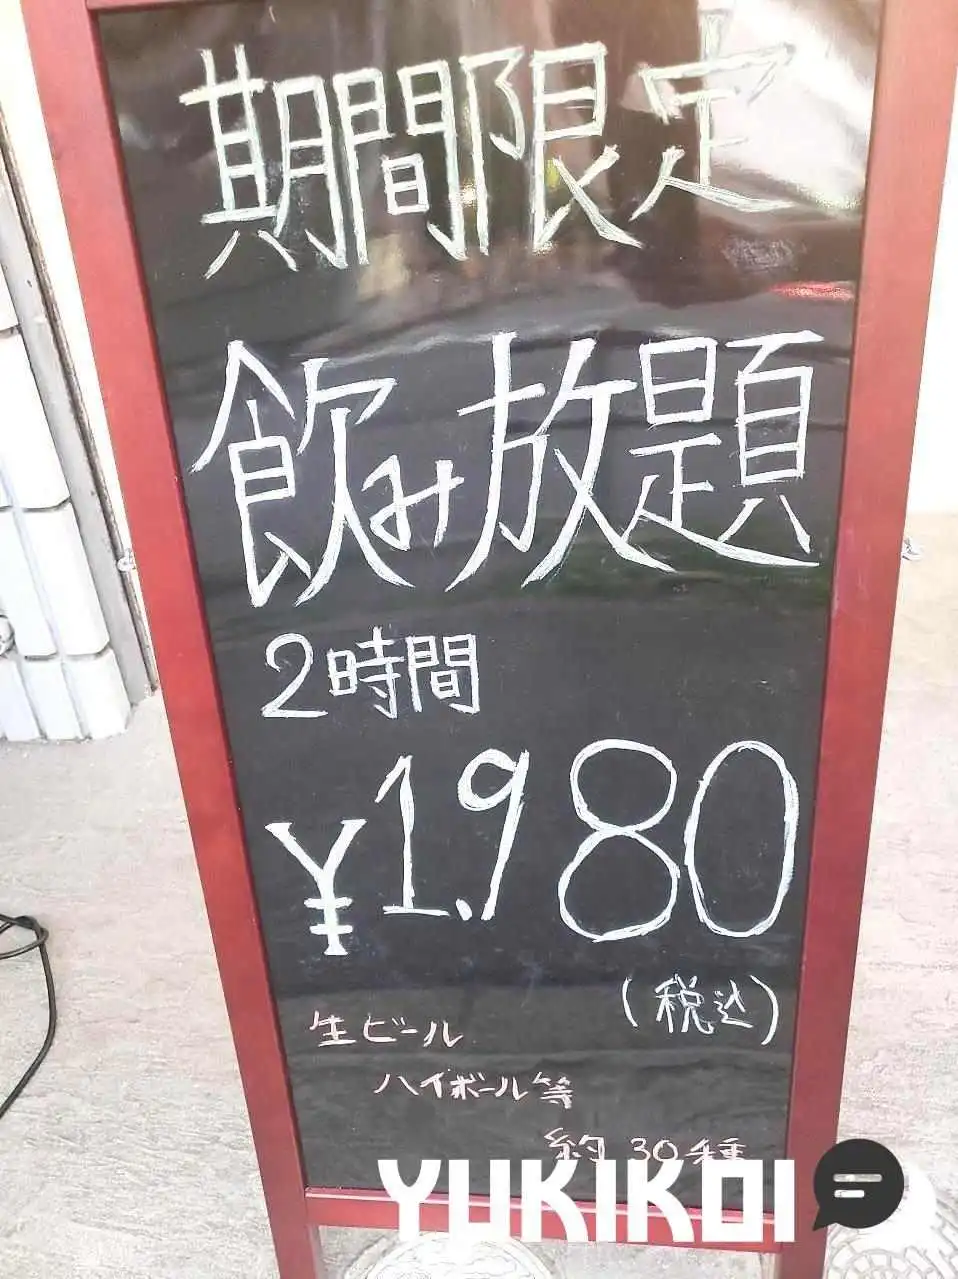 期間限定
飲み放題
2時間
¥1.980
(税込)
生ビール
ハイボール等
約30種
YUKIKOI